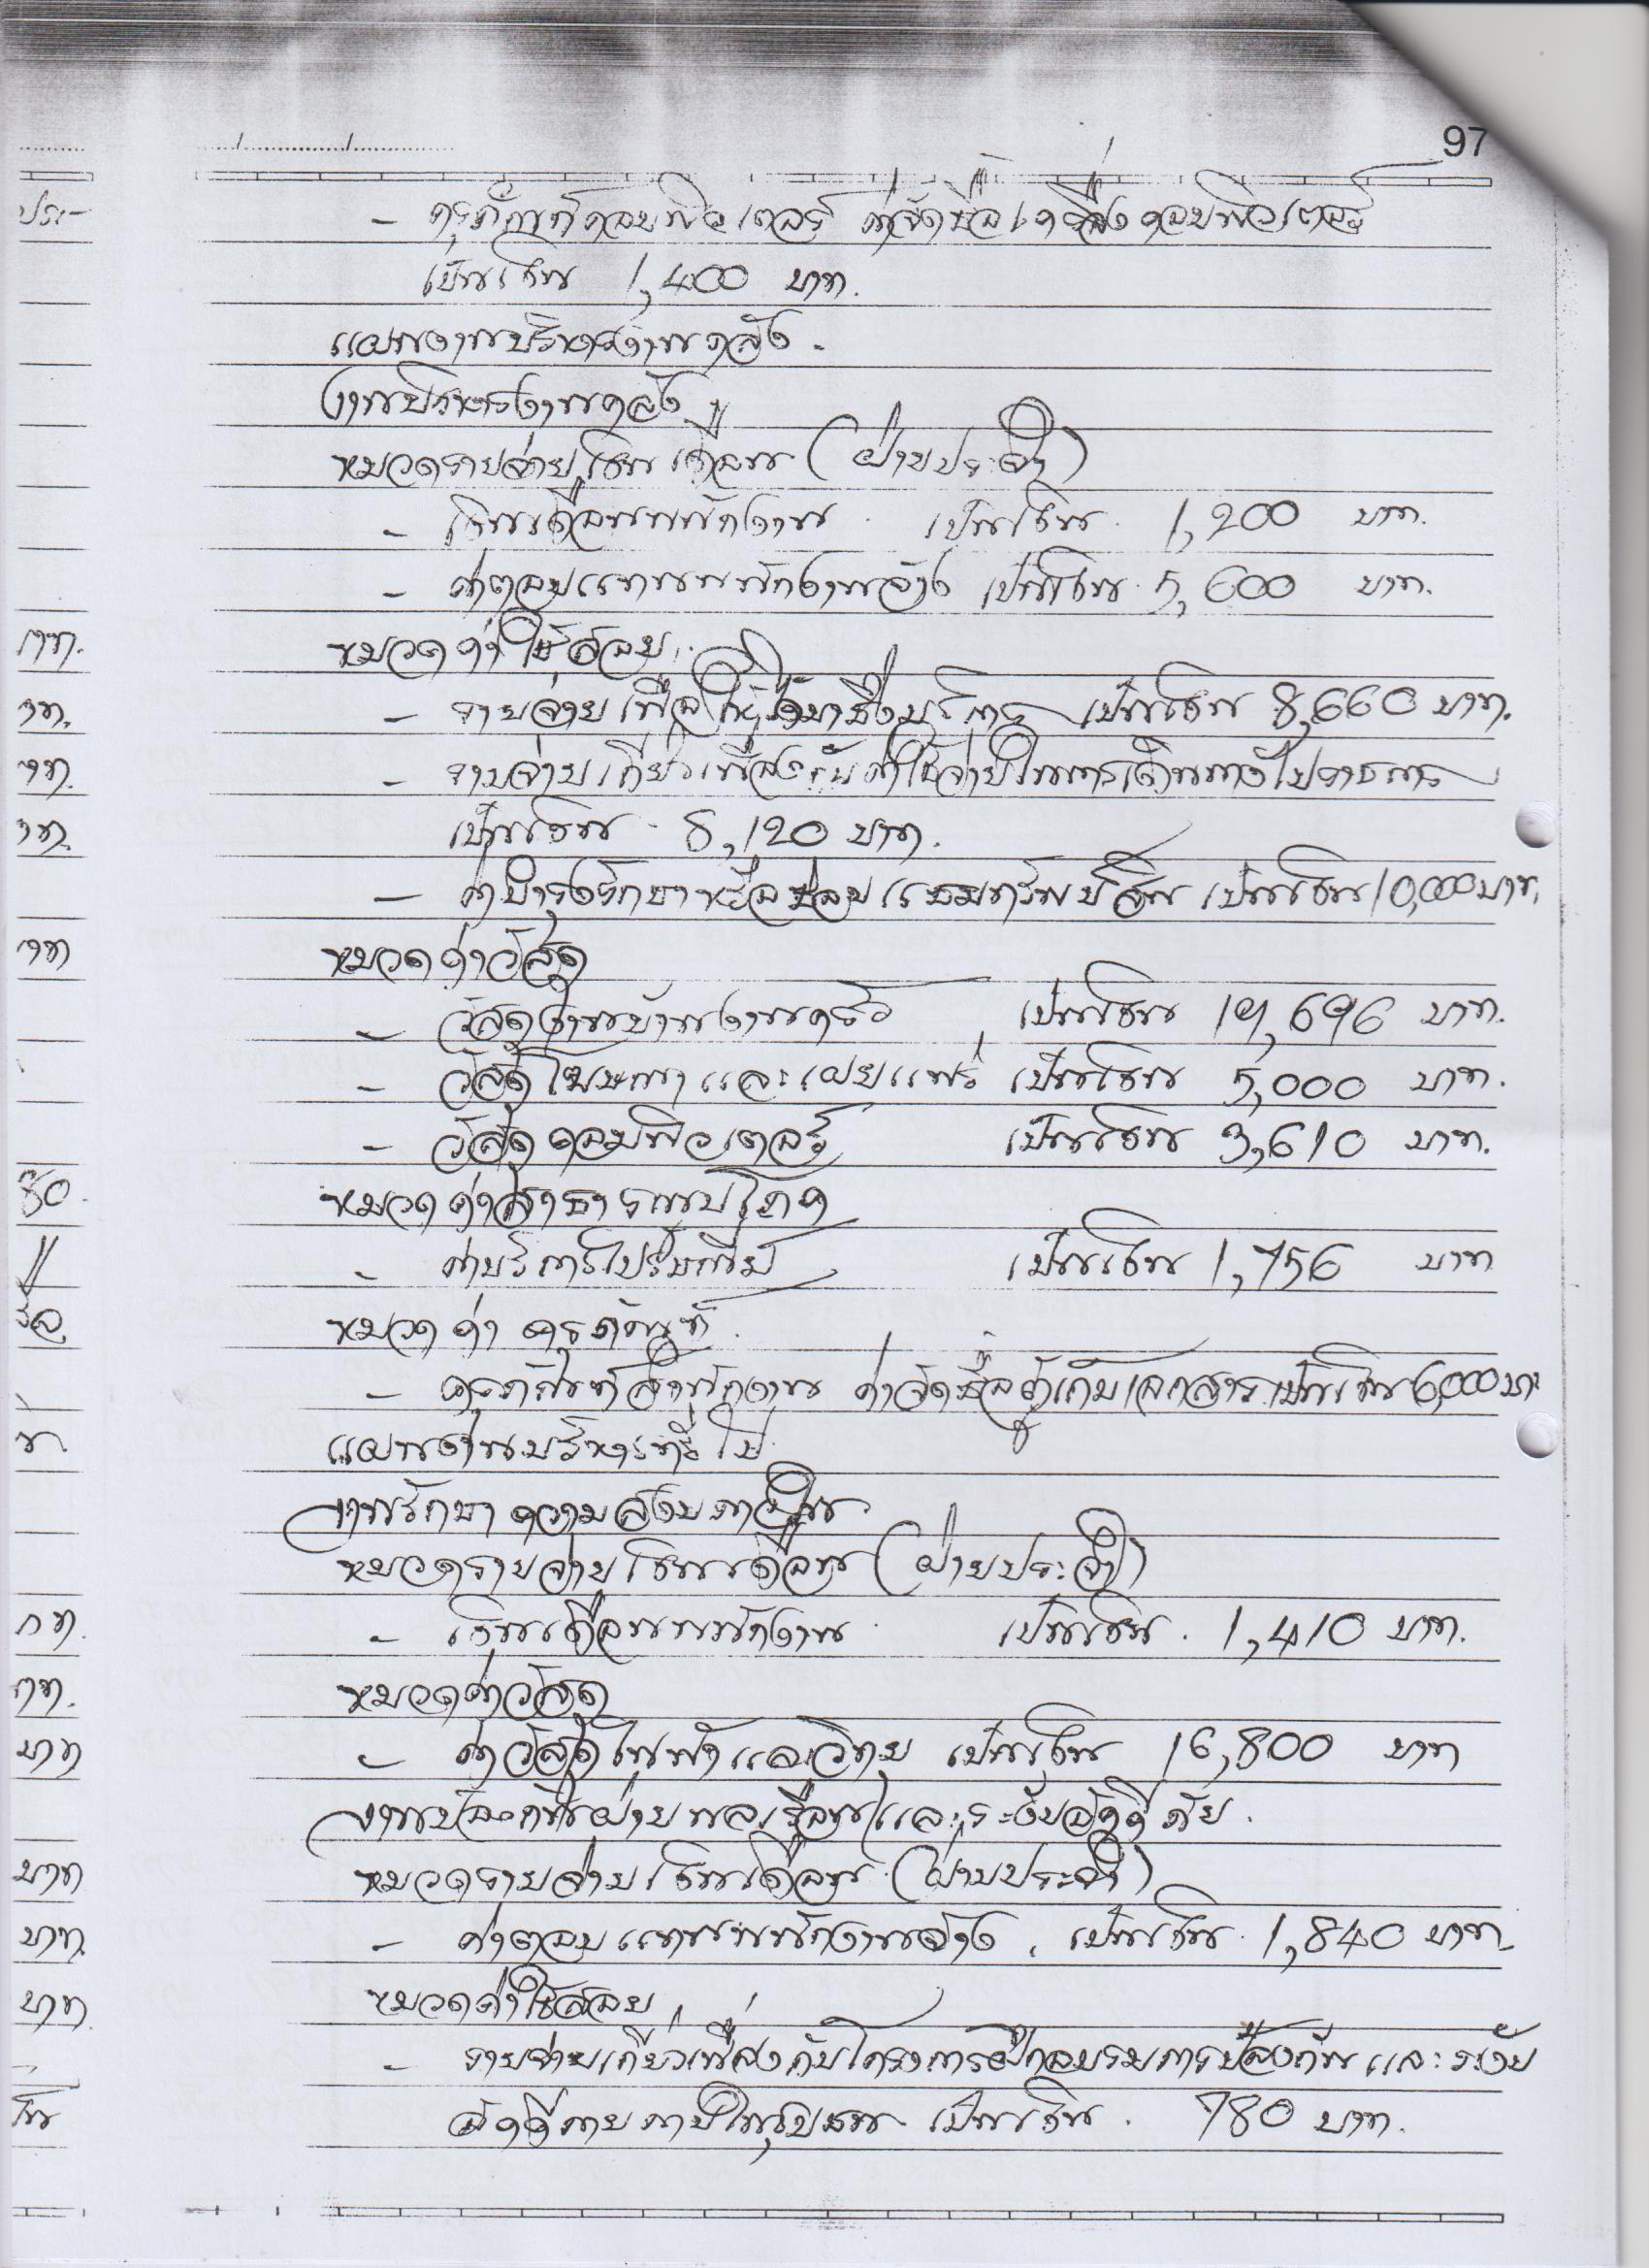 97
- ครุภัณฑ์คอมพิวเตอร์ ค่าจัดซื้อเครื่องคอมพิวเตอร์
เป็นเงิน 1,400 บาท.
แผนงานบริหารงานคลัง.
งานบริหารงานคลัง
หมวดรายจ่ายเงินเดือน (ฝ่ายประจำ)
- เงินเดือนพนักงาน เป็นเงิน 1,200 บาท.
- ค่าตอบแทนพนักงานจ้าง เป็นเงิน 5,600 บาท.
หมวดค่าใช้สอย
- รายจ่ายเพื่อให้ได้มาซึ่งบริการ เป็นเงิน 8,660 บาท.
- รายจ่ายเกี่ยวเนื่องกับค่าใช้จ่ายในการเดินทางไปราชการ
เป็นเงิน 8,120 บาท.
- ค่าบำรุงรักษาหรือซ่อมแซมทรัพย์สิน เป็นเงิน 10,000 บาท.
หมวดค่าวัสดุ
- วัสดุงานบ้านงานครัว เป็นเงิน 14,696 บาท.
- วัสดุโฆษณาและเผยแพร่ เป็นเงิน 5,000 บาท.
- วัสดุคอมพิวเตอร์ เป็นเงิน 3,610 บาท.
หมวดค่าสาธารณูปโภค
- ค่าบริการไปรษณีย์ เป็นเงิน 1,756 บาท
หมวดค่าครุภัณฑ์
- ครุภัณฑ์สำนักงาน ค่าจัดซื้อตู้เก็บเอกสาร เป็นเงิน 6,000 บาท
แผนงานบริหารทั่วไป
งานรักษาความสงบภายใน
หมวดรายจ่ายเงินเดือน (ฝ่ายประจำ)
- เงินเดือนพนักงาน เป็นเงิน 1,410 บาท.
หมวดค่าวัสดุ
- ค่าวัสดุไฟฟ้าและวิทยุ เป็นเงิน 16,800 บาท
งานป้องกันฝ่ายพลเรือนและระงับอัคคีภัย.
หมวดรายจ่ายเงินเดือน (ฝ่ายประจำ)
- ค่าตอบแทนพนักงานจ้าง เป็นเงิน 1,840 บาท.
หมวดค่าใช้สอย
- รายจ่ายเกี่ยวเนื่องกับโครงการฝึกอบรมการป้องกันและระงับ
อัคคีภัยภายในชุมชน เป็นเงิน 780 บาท.